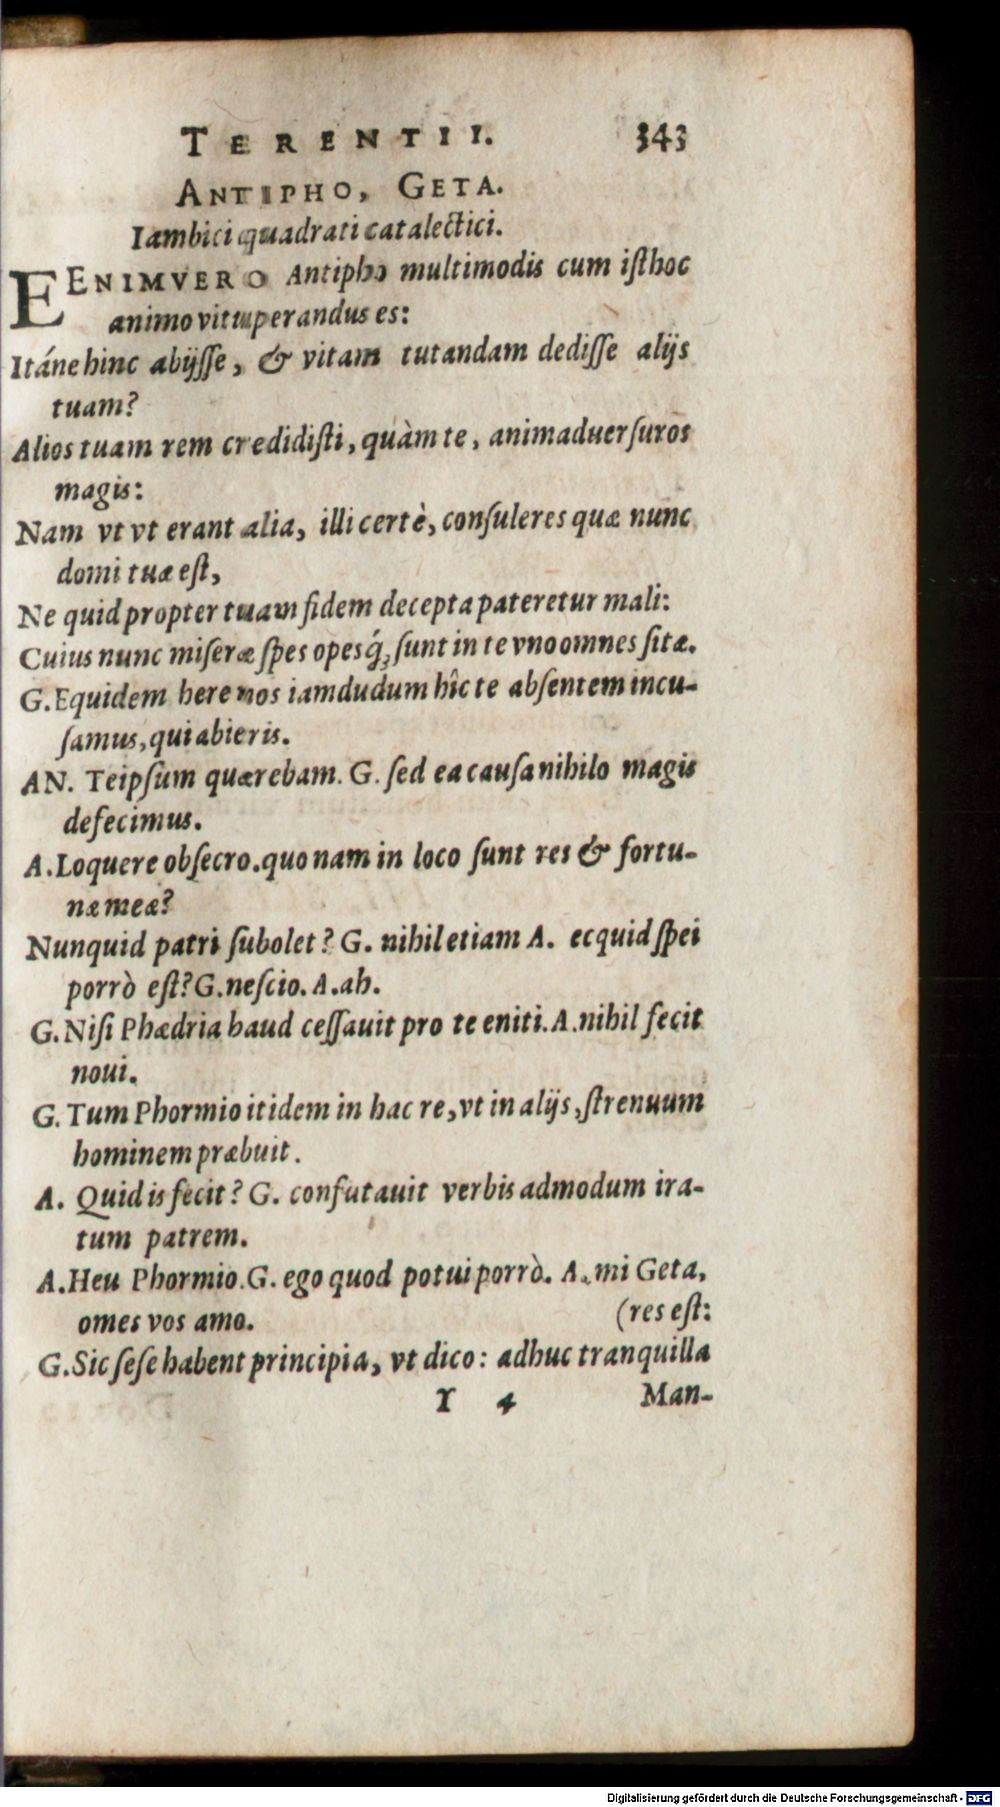 TERENTII. 343
ANTIPHO, GETA.
Iambici quadrati catalectici.
EENIMVERO Antipho multimodis cum iſthoc
animo vituperandus es:
Itáne hinc abijſſe, & vitam tutandam dediſſe alijs
tuam?
Alios tuam rem credidiſti, quàm te, animaduerſuros
magis:
Nam vt vt erant alia, illi certè, conſuleres quæ nunc
domi tuæ eſt,
Ne quid propter tuam fidem decepta pateretur mali:
Cuius nunc miſeræ ſpes opesq́; ſunt in te vno omnes ſitæ.
G. Equidem here nos iamdudum hîc te abſentem incu-
ſamus, qui abieris.
AN. Teipſum quærebam. G. ſed ea cauſa nihilo magis
defecimus.
A. Loquere obſecro. quo nam in loco ſunt res & fortu-
næ meæ?
Nunquid patri ſubolet? G. nihil etiam A. ecquid ſpei
porrò eſt? G. neſcio. A. ah.
G. Niſi Phædria haud ceſſauit pro te eniti. A. nihil fecit
noui.
G. Tum Phormio itidem in hac re, vt in alijs, ſtrenuum
hominem præbuit.
A. Quid is fecit? G. confutauit verbis admodum ira-
tum patrem.
A. Heu Phormio. G. ego quod potui porrò. A. mi Geta,
omes vos amo. (res eſt:
G. Sic ſeſe habent principia, vt dico: adhuc tranquilla
Y 4 Man-
Digitalisierung gefördert durch die Deutsche Forschungsgemeinschaft - DFG